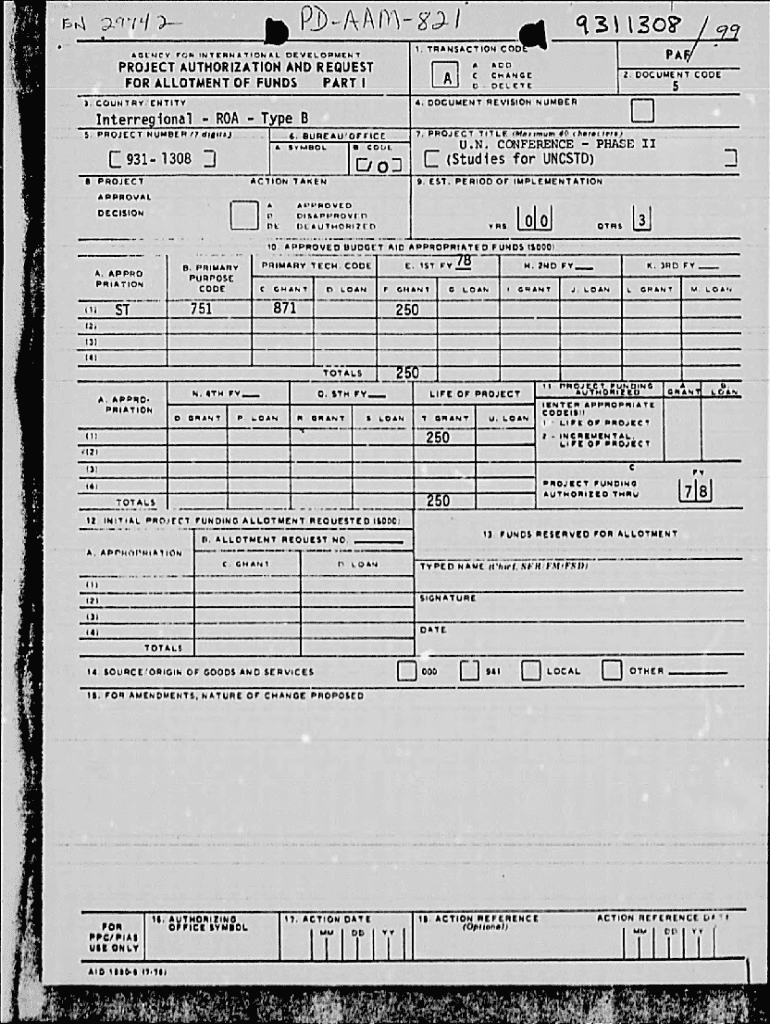 PD-AAM-821
9311308/99
AGENCY FOR INTERNATIONAL DEVELOPMENT
PROJECT AUTHORIZATION AND REQUEST
FOR ALLOTMENT OF FUNDS PART I
1. TRANSACTION CODE
A
A ADD
C CHANGE
D DELETE
PAF
2. DOCUMENT CODE
5
3. COUNTRY/ENTITY
Interregional - ROA - Type B
4. DOCUMENT REVISION NUMBER
5. PROJECT NUMBER (7 digits)
[ 931-1308 ]
6. BUREAU/OFFICE
A SYMBOL
B CODE
[ 10 ]
7. PROJECT TITLE (Maximum 40 characters)
U.N. CONFERENCE - PHASE II
[ (Studies for UNCSTD) ]
8 PROJECT APPROVAL DECISION
ACTION TAKEN
A APPROVED
D DISAPPROVED
DE DEAUTHORIZED
9. EST. PERIOD OF IMPLEMENTATION
YRS 00 QTRS 3
10. APPROVED BUDGET AID APPROPRIATED FUNDS ($000)
A. APPROPRIATION
B. PRIMARY PURPOSE CODE
PRIMARY TECH. CODE
E. 1ST FY 78
H. 2ND FY
K. 3RD FY
C GRANT D LOAN F GRANT G LOAN I GRANT J. LOAN L GRANT M. LOAN
(1) ST 751 871 250
(2)
(3)
(4)
TOTALS 250
A. APPROPRIATION
N. 4TH FY
Q. 5TH FY
LIFE OF PROJECT
O GRANT P. LOAN R GRANT S LOAN T GRANT U. LOAN
(1) 250
(2)
(3)
(4)
TOTALS 250
11 PROJECT FUNDING AUTHORIZED
A GRANT
B. LOAN
(ENTER APPROPRIATE CODE(S))
1 - LIFE OF PROJECT
2 - INCREMENTAL, LIFE OF PROJECT
C
PROJECT FUNDING AUTHORIZED THRU
FY
78
12. INITIAL PROJECT FUNDING ALLOTMENT REQUESTED ($000)
A. APPROPRIATION
B. ALLOTMENT REQUEST NO.
C. GRANT
D LOAN
(1)
(2)
(3)
(4)
TOTALS
13. FUNDS RESERVED FOR ALLOTMENT
TYPED NAME (Chief, SER/FM/FSD)
SIGNATURE
DATE
14. SOURCE/ORIGIN OF GOODS AND SERVICES
000 941 LOCAL OTHER
15. FOR AMENDMENTS, NATURE OF CHANGE PROPOSED
FOR PPC/PIAS USE ONLY
16. AUTHORIZING OFFICE SYMBOL
17. ACTION DATE
MM DD YY
18. ACTION REFERENCE
(Optional)
ACTION REFERENCE DATE
MM DD YY